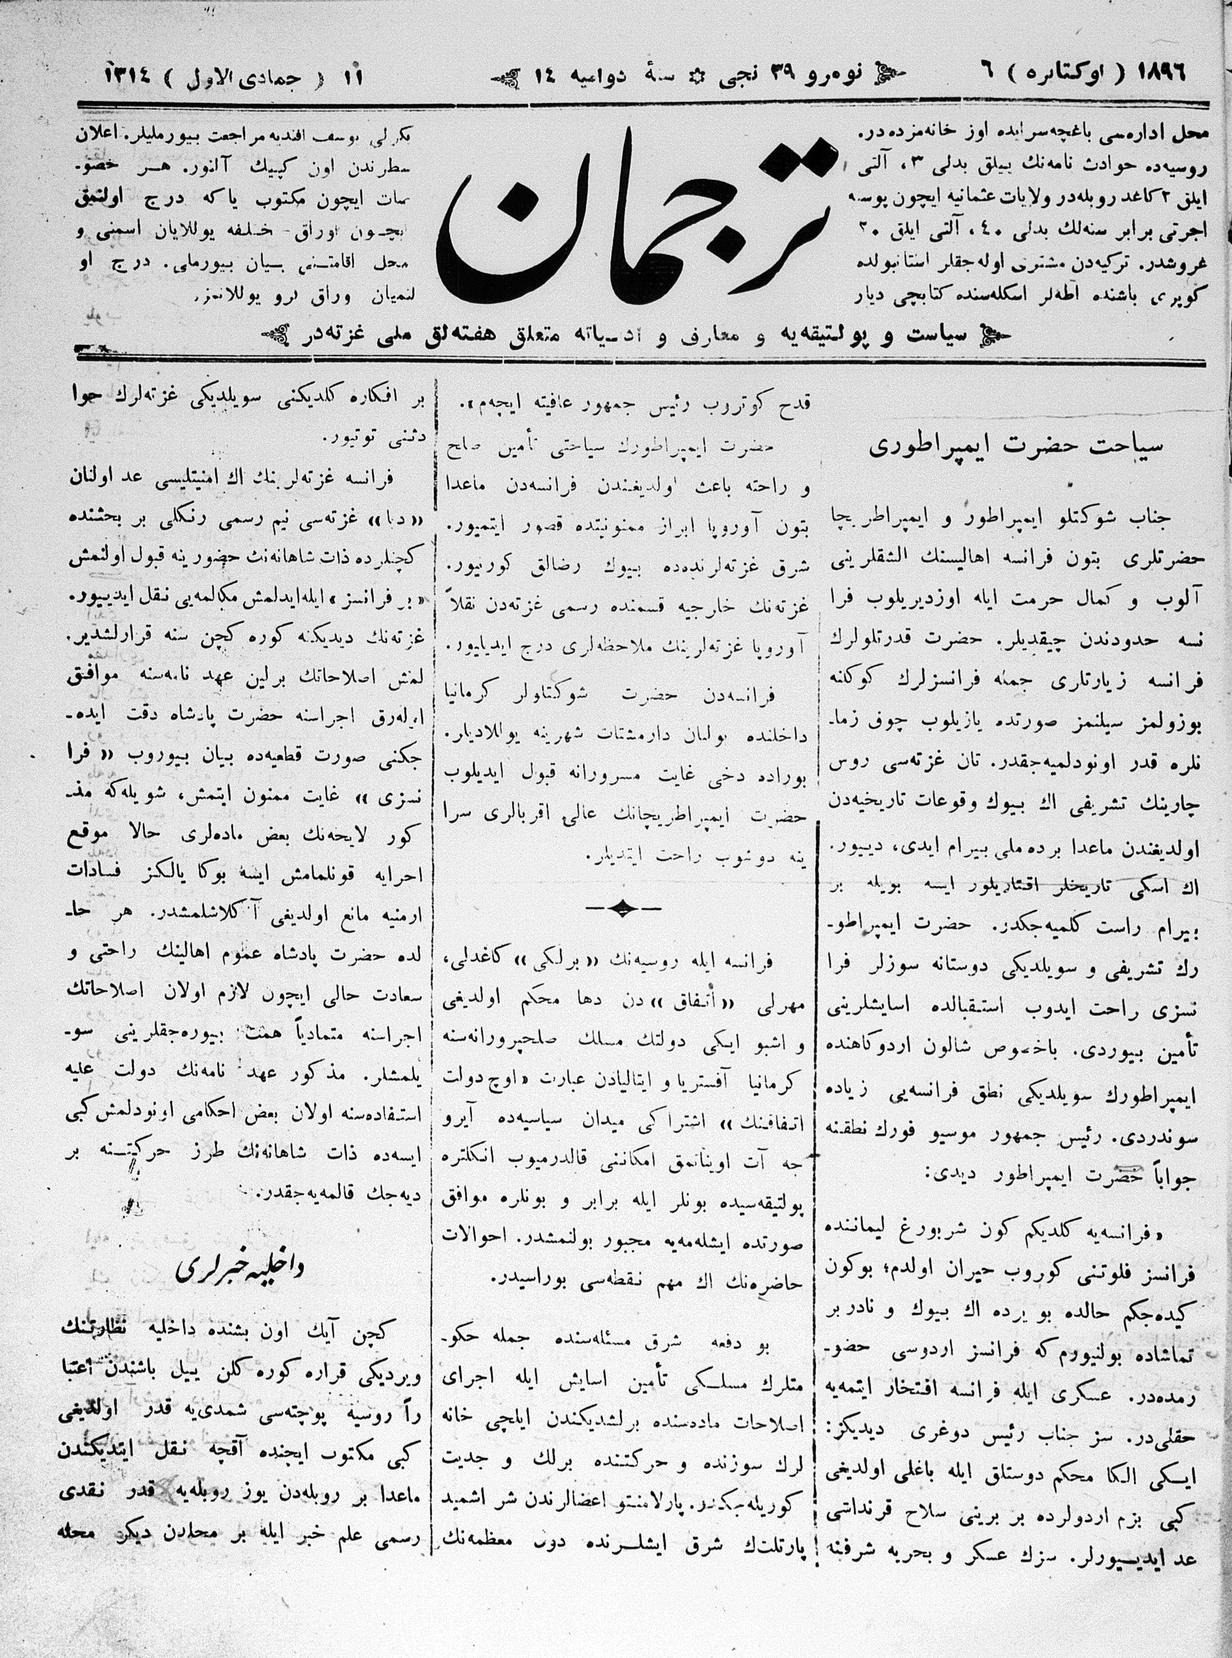 ١٨٩٦ ( اوكتابره ) ٦
نومرو ٣٩ نجی
سنهٔ دواميه ١٤
١١ ( جمادی الاول ) ١٣١٤
محل اداره‌سی باغچه‌سرايده اوز خانه‌مزده‌در.
روسيه‌ده حوادث نامه‌نك ييللق بدلی ٣، آلتی
ايلق ٢ كاغد روبله‌در ولايات عثمانيه ايچون پوسته
اجرتی برابر سنه‌لك بدلی ٤٠، آلتی ايلق ٢٠
غروشدر. تركيه‌دن مشتری اوله‌جقلر استانبولده
كوپری باشنده اطه‌لر اسكله‌سنده كتابچی ديار
ترجمان
بكرلی يوسف افنديه مراجعت بيورمليلر. اعلان
سطرندن اون كپيك آلنور. هر خصو-
صات ايچون مكتوب ياكه درج اولنمق
ايچون اوراق خلفه يوللايان اسمنی و
محل اقامتنی بيان بيورملی. درج او
لنميان وراق كرو يوللانمز.
سياست و پولتيقه‌يه و معارف و ادبياته متعلق هفته‌لق ملی غزته‌در
سياحت حضرت ايمپراطوری
جناب شوكتلو ايمپراطور و ايمپراطريچا
حضرتلری بتون فرانسه اهاليسنك الشقلرينی
آلوب و كمال حرمت ايله اوزديريلوب فرا
نسه حدودندن چيقديلر. حضرت قدرتلولرك
فرانسه زيارتلری جمله فرانسزلرك كوكلنه
بوزولمز سيلنمز صورتده يازيلوب چوق زما-
نلره قدر اونودلميه‌جقدر. تان غزته‌سی روس
چارينك تشريفی اك بيوك وقوعات تاريخيه‌دن
اولديغندن ماعدا برده ملی بيرام ايدی، دييور.
اك اسكی تاريخلر اقتاريلور ايسه بويله بر
بيرام راست كلميه‌جكدر. حضرت ايمپراطو-
رك تشريفی و سويلديكی دوستانه سوزلر فرا
نسزی راحت ايدوب استقبالده اسايشلرينی
تأمين بيوردی. باخصوص شالون اردوكاهنده
ايمپراطورك سويلديكی نطق فرانسه‌يی زياده
سوندردی. رئيس جمهور موسيو فورك نطقنه
جواباً حضرت ايمپراطور ديدی:
«فرانسه‌يه كلديكم كون شربورغ ليماننده
فرانسز فلوتنی كوروب حيران اولدم؛ بوكون
كيده‌جكم حالده بو يرده اك بيوك و نادر بر
تماشاده بولنيورم كه فرانسز اردوسی حضو-
رمده‌در. عسكری ايله فرانسه افتخار ايتمه‌يه
حقلی‌در. سز جناب رئيس دوغری ديديكز:
ايكی الكا محكم دوستلق ايله باغلی اولديغی
كبی بزم اردولرده بر برينی سلاح قرنداشی
عد ايدييورلر. سزك عسكر و بحريه شرفنه
قدح كوتروب رئيس جمهور عافيته ايچه‌م».
حضرت ايمپراطورك سياحتی تأمين صلح
و راحته باعث اولديغندن فرانسه‌دن ماعدا
بتون آوروپا ابراز ممنونيتده قصور ايتميور.
شرق غزته‌لرنده‌ده بيوك رضالق كورنيور.
غزته‌نك خارجيه قسمنده رسمی غزته‌دن نقلاً
آوروپا غزته‌لرينك ملاحظه‌لری درج ايديليور.
فرانسه‌دن حضرت شوكتلولر كرمانيا
داخلنده بولنان دارمشتات شهرينه يوللاديلر.
بوراده دخی غايت مسرورانه قبول ايديلوب
حضرت ايمپراطريچانك عالی اقربالری سرا
ينه دوشوب راحت ايتديلر.
فرانسه ايله روسيه‌نك «برلكی» كاغدلی،
مهرلی «اتفاق» دن دها محكم اولديغی
و اشبو ايكی دولتك مسلك صلحپرورانه‌سنه
كرمانيا آفستريا و ايتاليادن عبارت «اوچ دولت
اتفاقنك» اشتراكی ميدان سياسيه‌ده آيرو
جه آت اويناتمق امكاننی قالدرميوب انكلتره
پولتيقه‌سيده بونلر ايله برابر و بونلره موافق
صورتده ايشله‌مه‌يه مجبور بولنمشدر. احوالات
حاضره‌نك اك مهم نقطه‌سی بوراسيدر.
بو دفعه شرق مسئله‌سنده جمله حكو-
متلرك مسلكی تأمين اسايش ايله اجرای
اصلاحات ماده‌سنده برلشديكندن ايلچی خانه
لرك سوزنده و حركتنده برلك و جديت
كوريله‌جكدر. پارلامنتو اعضالرندن شر اشميد
پارتلتك شرق ايشلرنده دول معظمه‌نك
بر افكاره كلديكنی سويلديكی غزته‌لرك حوا
دثنی توتيور.
فرانسه غزته‌لرينك اك امنيتليسی عد اولنان
«دبا» غزته‌سی نيم رسمی رنكلی بر بحثنده
كچنلرده ذات شاهانه‌نك حضورينه قبول اولنمش
«بر فرانسز» ايله ايدلمش مكالمه‌يی نقل ايدييور.
غزته‌نك ديديكنه كوره كچن سنه قرارلشدير.
لمش اصلاحاتك برلين عهد نامه‌سنه موافق
اوله‌رق اجراسنه حضرت پادشاه دقت ايده-
جكنی صورت قطعيه‌ده بيان بيوروب «فرا
نسزی» غايت ممنون ايتمش، شويله‌كه مذ
كور لايحه‌نك بعض ماده‌لری حالا موقع
اجرايه قونلمامش ايسه بوكا يالكز فسادات
ارمنيه مانع اولديغی آكلاشلمشدر. هر حا-
لده حضرت پادشاه عموم اهالينك راحتی و
سعادت حالی ايچون لازم اولان اصلاحاتك
اجراسنه متمادياً همت بيوره‌جقلرينی سو-
يلمشلر. مذكور عهد نامه‌نك دولت عليه
استفاده‌سنه اولان بعض احكامی اونودلمش كبی
ايسه‌ده ذات شاهانه‌نك طرز حركتنه بر
ديه‌جك قالمه‌يه‌جقدر.
داخليه خبرلری
كچن آيك اون بشنده داخليه نظارتنك
ويرديكی قراره كوره كلن ييل باشندن اعتبا
راً روسيه پوچته‌سی شمدی‌يه قدر اولديغی
كبی مكتوب ايچنده آقچه نقل ايتديكندن
ماعدا بر روبله‌دن يوز روبله‌يه قدر نقدی
رسمی علم خبر ايله بر محلدن ديكر محله